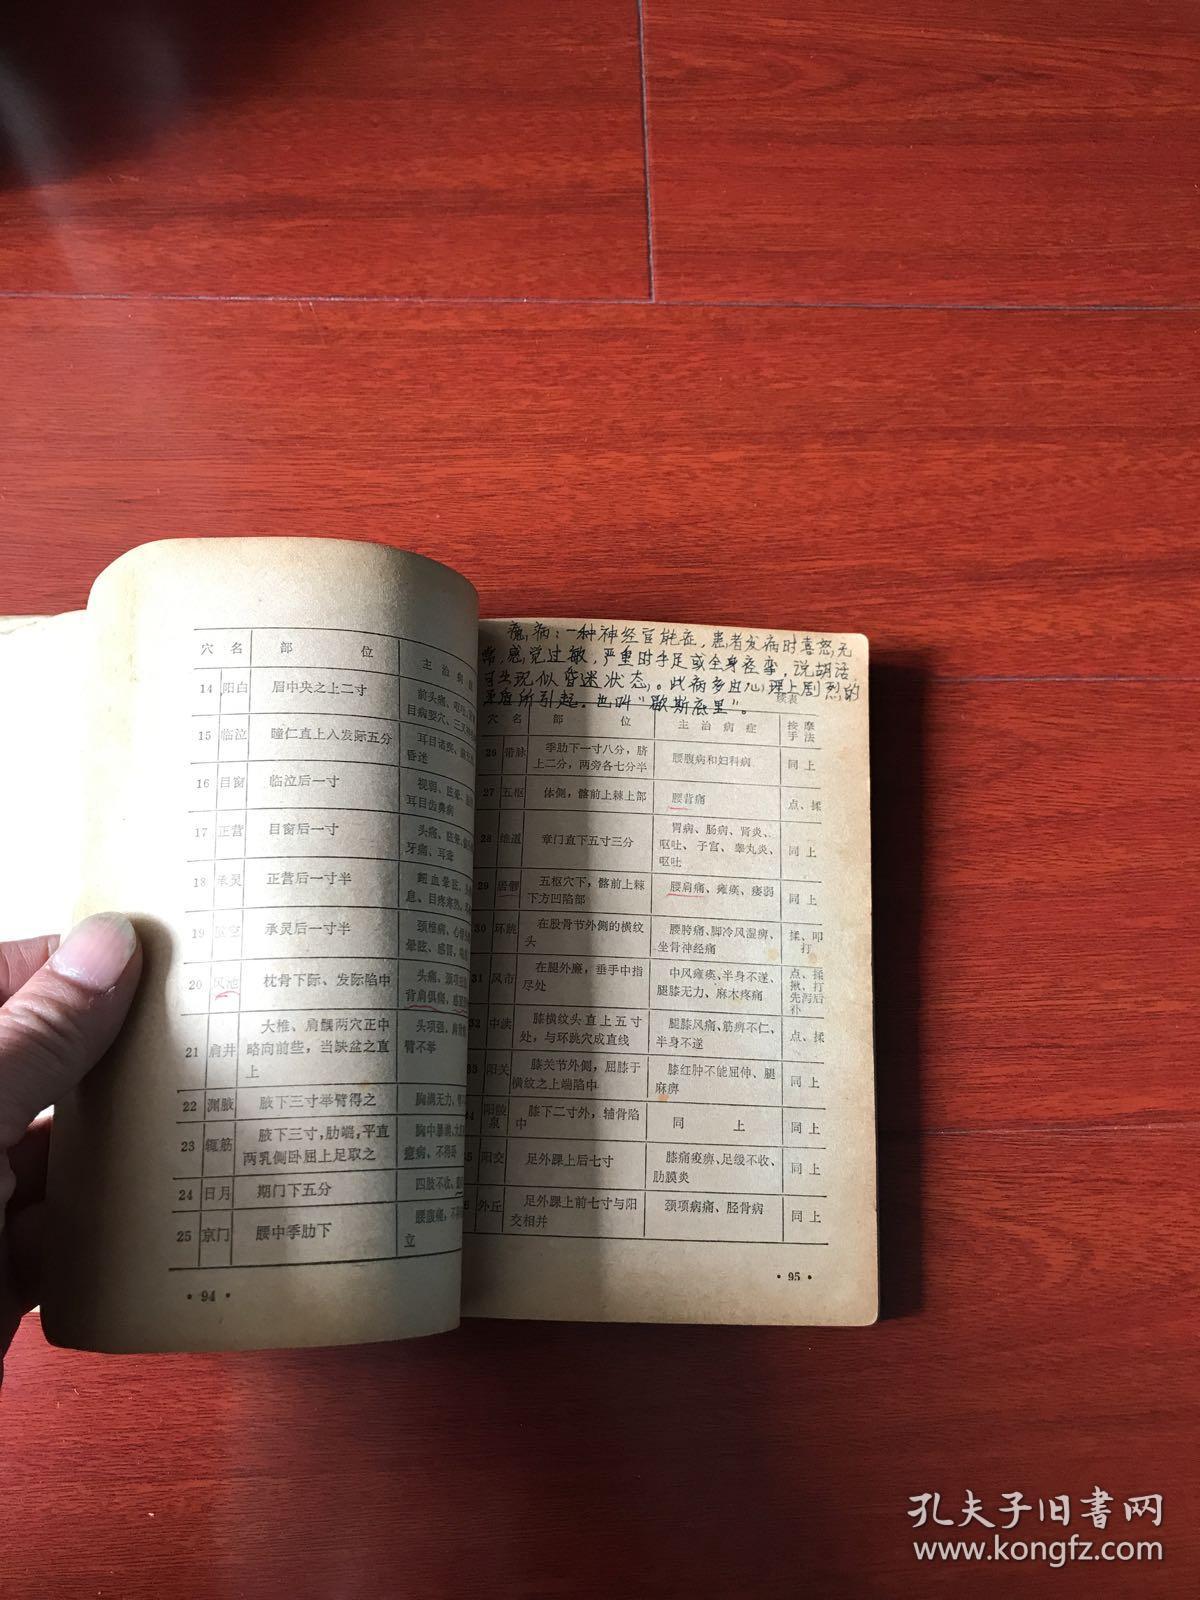 穴 名 部 位 主 治 病
14 阳白 眉中央之上二寸 前头痛、
目病要穴、三叉神
15 临泣 瞳仁直上入发际五分 耳目诸疾、
昏迷
16 目窗 临泣后一寸 视弱、眩晕、
耳目齿鼻病
17 正营 目窗后一寸 头痛、眩晕、
牙痛、耳聋
18 承灵 正营后一寸半 衄血晕眩、
息、目疼寒热、
19 承灵后一寸半 颈椎病、心
晕眩、感冒、
20 风池 枕骨下际、发际陷中 头痛、颈项
背肩俱痛、感冒
21 肩井 大椎、肩髃两穴正中 头项强、肩背
略向前些,当缺盆之直 臂不举
上
22 渊腋 腋下三寸举臂得之 胸满无力、
23 辄筋 腋下三寸,肋端,平直 胸中暴满、
两乳侧卧屈上足取之 病、不得卧
24 日月 期门下五分 四肢不收、
25 京门 腰中季肋下 腰腹痛,不
立
• 94 •
病:一种神经官能症,患者发病时喜怒无
常,感觉过敏,严重时手足或全身痉挛,说胡话
可出现似昏迷状态。此病多由心理上剧烈的
所引起。也叫“歇斯底里”。
续表
穴 名 部 位 主 治 病 症 按 摩
手 法
26 带脉 季肋下一寸八分,脐 腰腹病和妇科病 同 上
上二分,两旁各七分半
27 五枢 体侧,髂前上棘上部 腰背痛 点、揉
28 维道 章门直下五寸三分 胃病、肠病、肾炎、 同 上
呕吐、子宫、睾丸炎、
呕吐
29 居髎 五枢穴下,髂前上棘 腰肩痛、瘫痪、痿弱 同 上
下方凹陷部
30 环跳 在股骨节外侧的横纹 腰胯痛、脚冷风湿痹、 揉、叩
头 坐骨神经痛 打
31 风市 在腿外廉,垂手中指 中风瘫痪、半身不遂、 点、揉
尽处 腿膝无力、麻木疼痛 揪、打
先泻后
补
32 中渎 膝横纹头直上五寸 腿膝风痛、筋痹不仁、 点、揉
处,与环跳穴成直线 半身不遂
33 阳关 膝关节外侧,屈膝于 膝红肿不能屈伸、腿 同 上
横纹之上端陷中 麻痹
34 阳陵 膝下二寸外,辅骨陷 同 上 同 上
泉 中
35 阳交 足外踝上后七寸 膝痛痿痹、足缓不收、 同 上
肋膜炎
外丘 足外踝上前七寸与阳 颈项病痛、胫骨病 同 上
交相并
• 95 •
孔夫子旧书网
www.kongfz.com